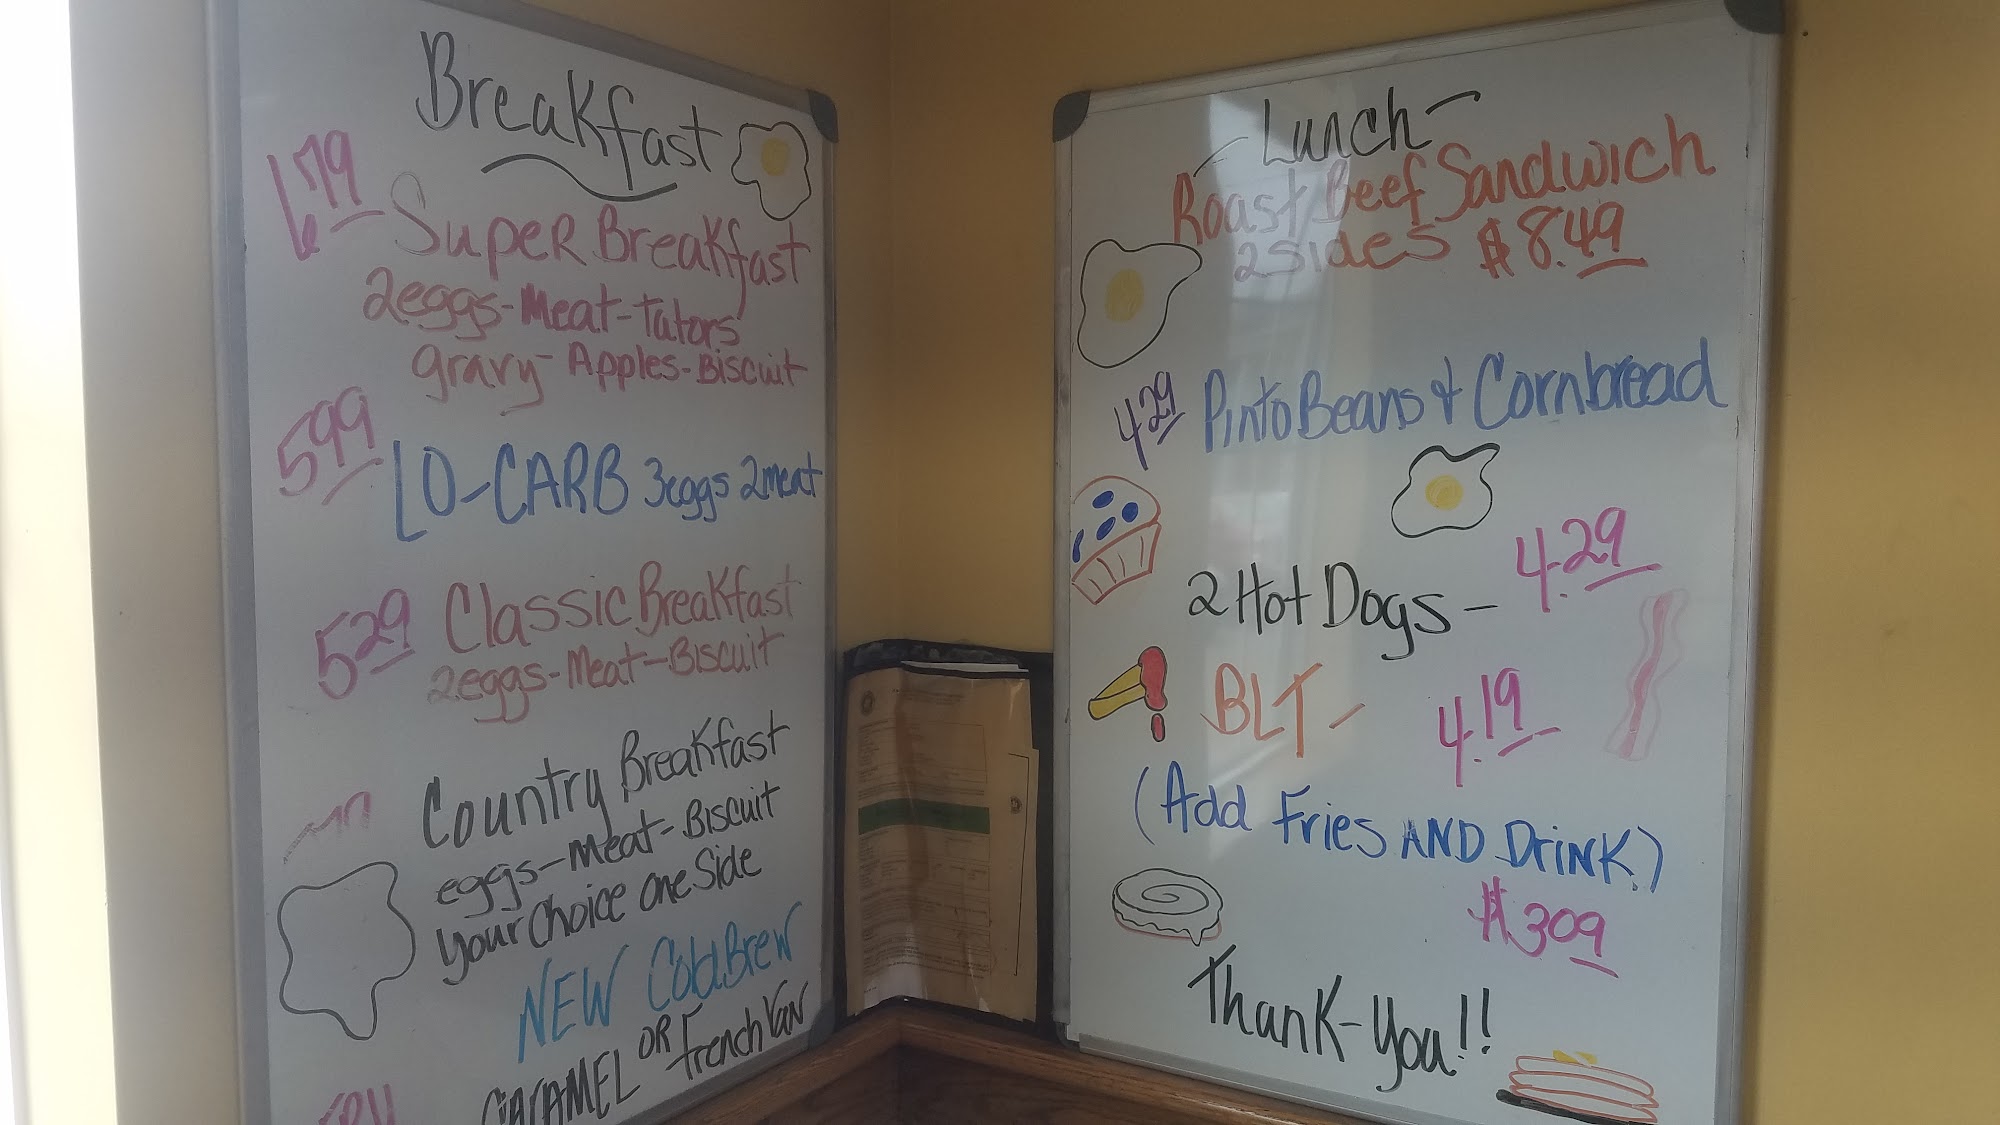 Breakfast
6.79
Super Breakfast
2eggs-Meat-Tators
gravy-Apples-Biscuit
5.99
LO-CARB 3eggs 2meat
5.29 Classic Breakfast
2eggs-Meat-Biscuit
Country Breakfast
eggs-Meat-Biscuit
your Choice one Side
NEW Cold Brew
CARAMEL OR French Van
-Lunch-
Roast Beef Sandwich
2 Sides $8.49
4.29 Pinto Beans & Cornbread
2 Hot Dogs - 4.29
BLT - 4.19
(Add Fries AND Drink)
$309
Thank-You!!